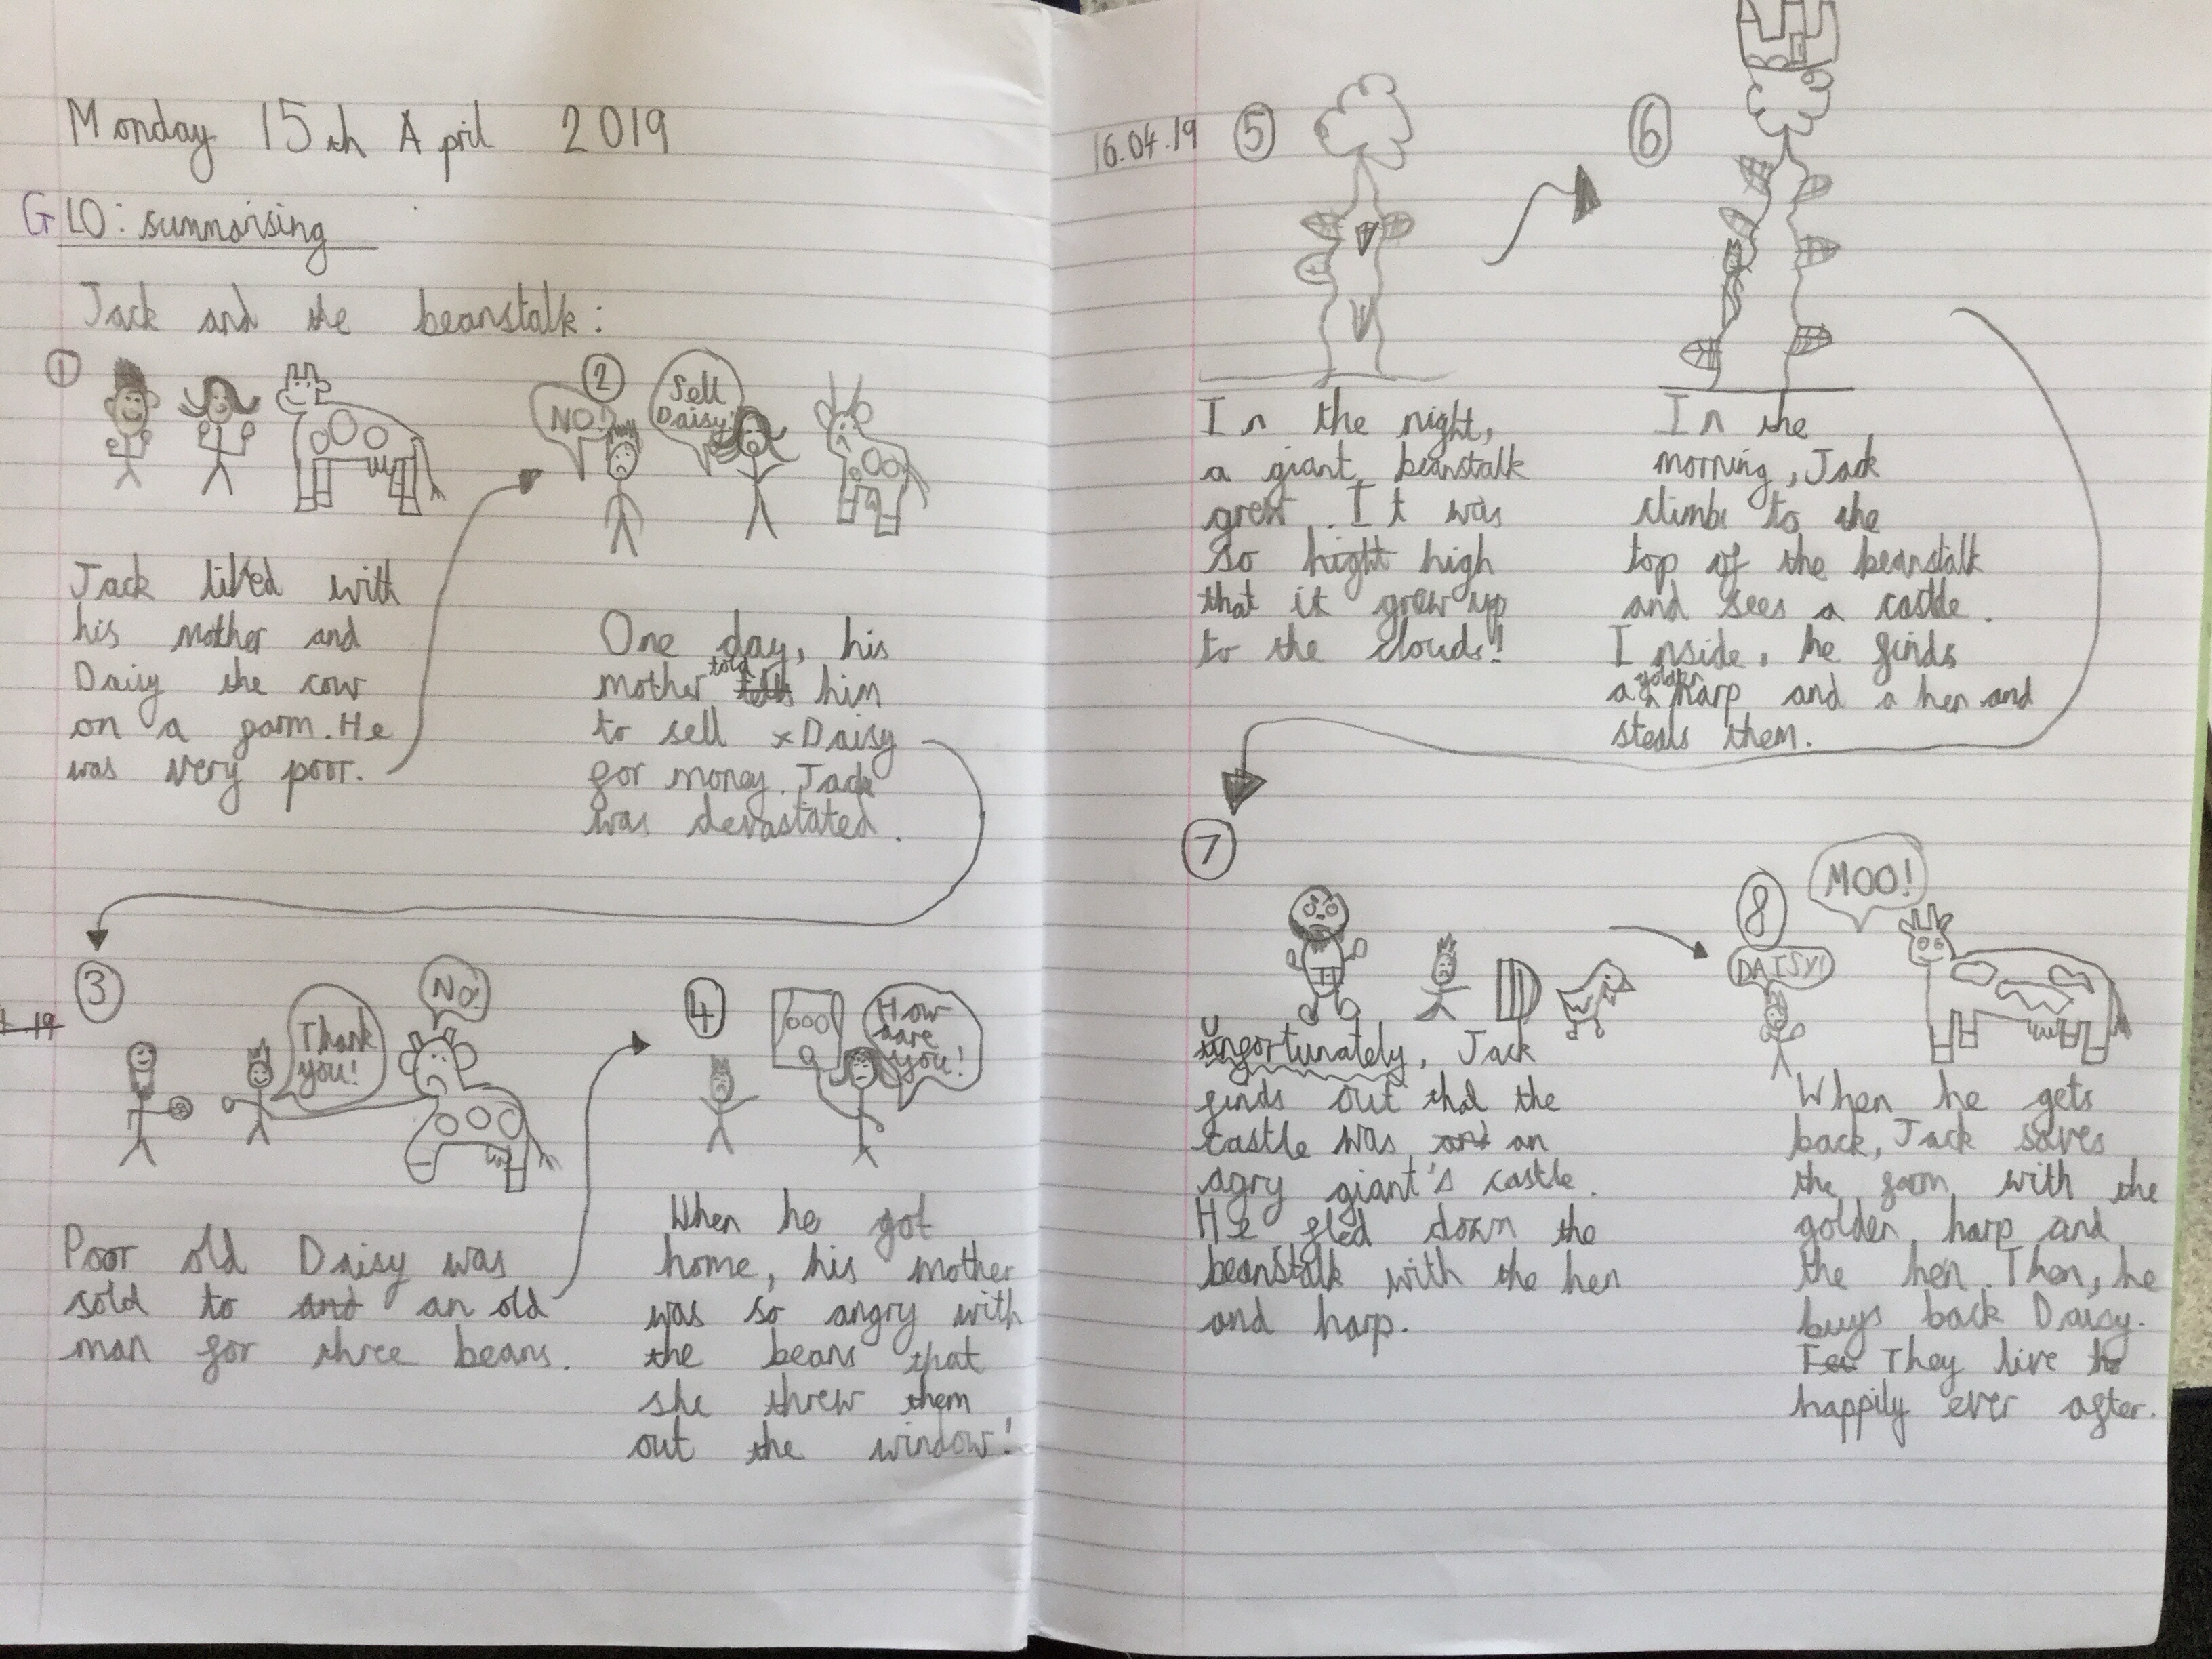 Monday 15th April 2019
G LO: summarising
Jack and the beanstalk:
1
Jack lived with
his mother and
Daisy the cow
on a farm. He
was very poor.
2
NO!
Sell
Daisy!
One day, his
mother told him
to sell Daisy
for money. Jack
was devastated.
3
Thank
you!
No!
Poor old Daisy was
sold to and an old
man for three beans.
4
How
dare
you!
When he got
home, his mother
was so angry with
the beans that
she threw them
out the window!
16.04.19
5
In the night,
a giant beanstalk
grew. It was
so hight high
that it grew up
to the clouds!
6
In the
morning, Jack
climbs to the
top of the beanstalk
and sees a castle.
Inside, he finds
a golden harp and a hen and
steals them.
7
Unfortunately, Jack
finds out that the
castle was and an
agry giant's castle.
He fled down the
beanstalk with the hen
and harp.
8
MOO!
DAISY!
When he gets
back, Jack saves
the farm with the
golden harp and
the hen. Then, he
buys back Daisy.
They live
happily ever after.